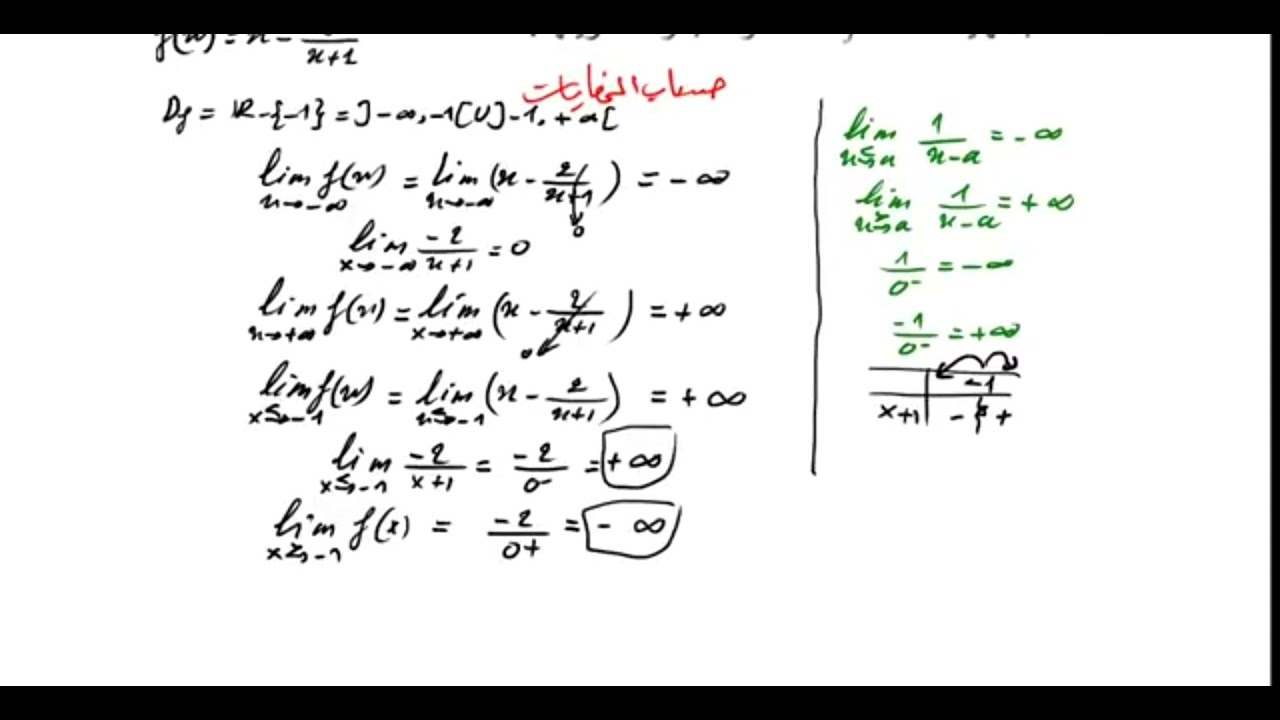 f(x) = x - 2/(x+1)
حساب النهايات
Df = ℝ - {-1} = ]-∞, -1[ ∪ ]-1, +∞[
lim x→-∞ f(x) = lim x→-∞ (x - 2/(x+1)) = -∞
0
lim x→-∞ -2/(x+1) = 0
lim x→+∞ f(x) = lim x→+∞ (x - 2/(x+1)) = +∞
0
lim x→<-1 f(x) = lim x→<-1 (x - 2/(x+1)) = +∞
lim x→<-1 -2/(x+1) = -2/0- = +∞
lim x→>-1 f(x) = -2/0+ = -∞
lim x→<a 1/(x-a) = -∞
lim x→>a 1/(x-a) = +∞
1/0- = -∞
-1/0- = +∞
-1
x+1 - 0 +